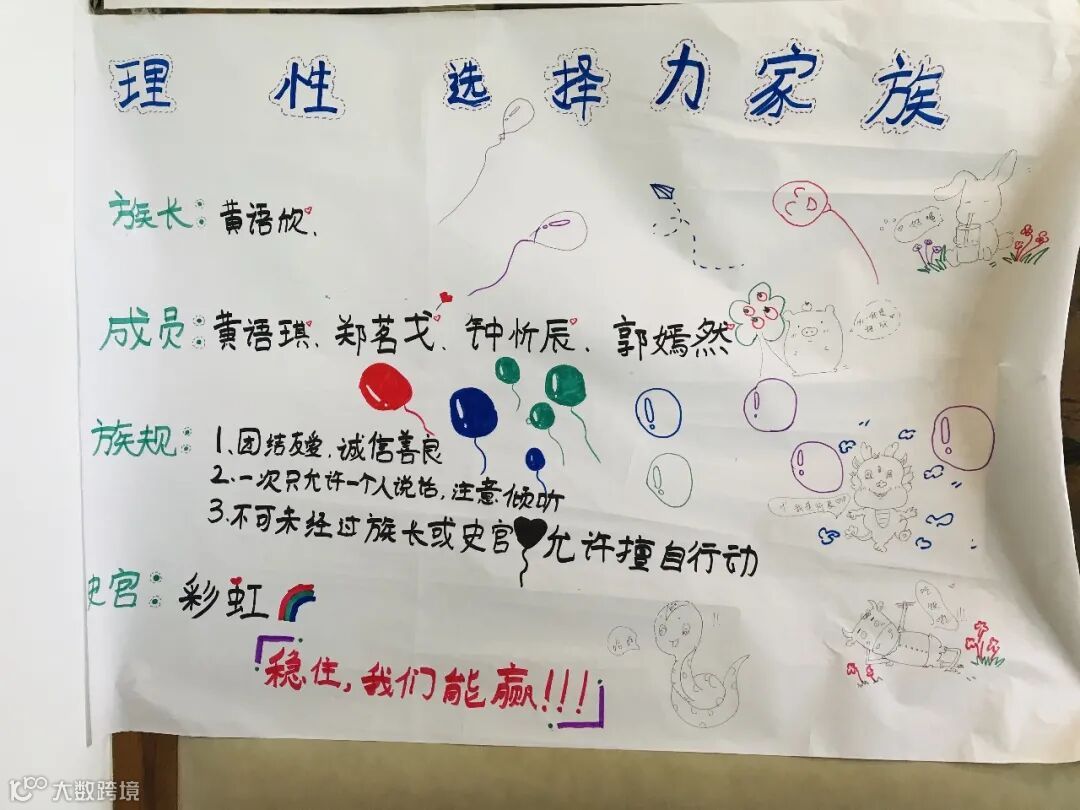 理性选择力家族
族长：黄语欣、
成员：黄语琪、郑茗戈、钟忻辰、郭嫣然
族规：1.团结友爱，诚信善良
2.一次只允许一个人说话，注意倾听
3.不可未经过族长或史官允许擅自行动
史官：彩虹
「稳住，我们能赢!!!」
大数跨境